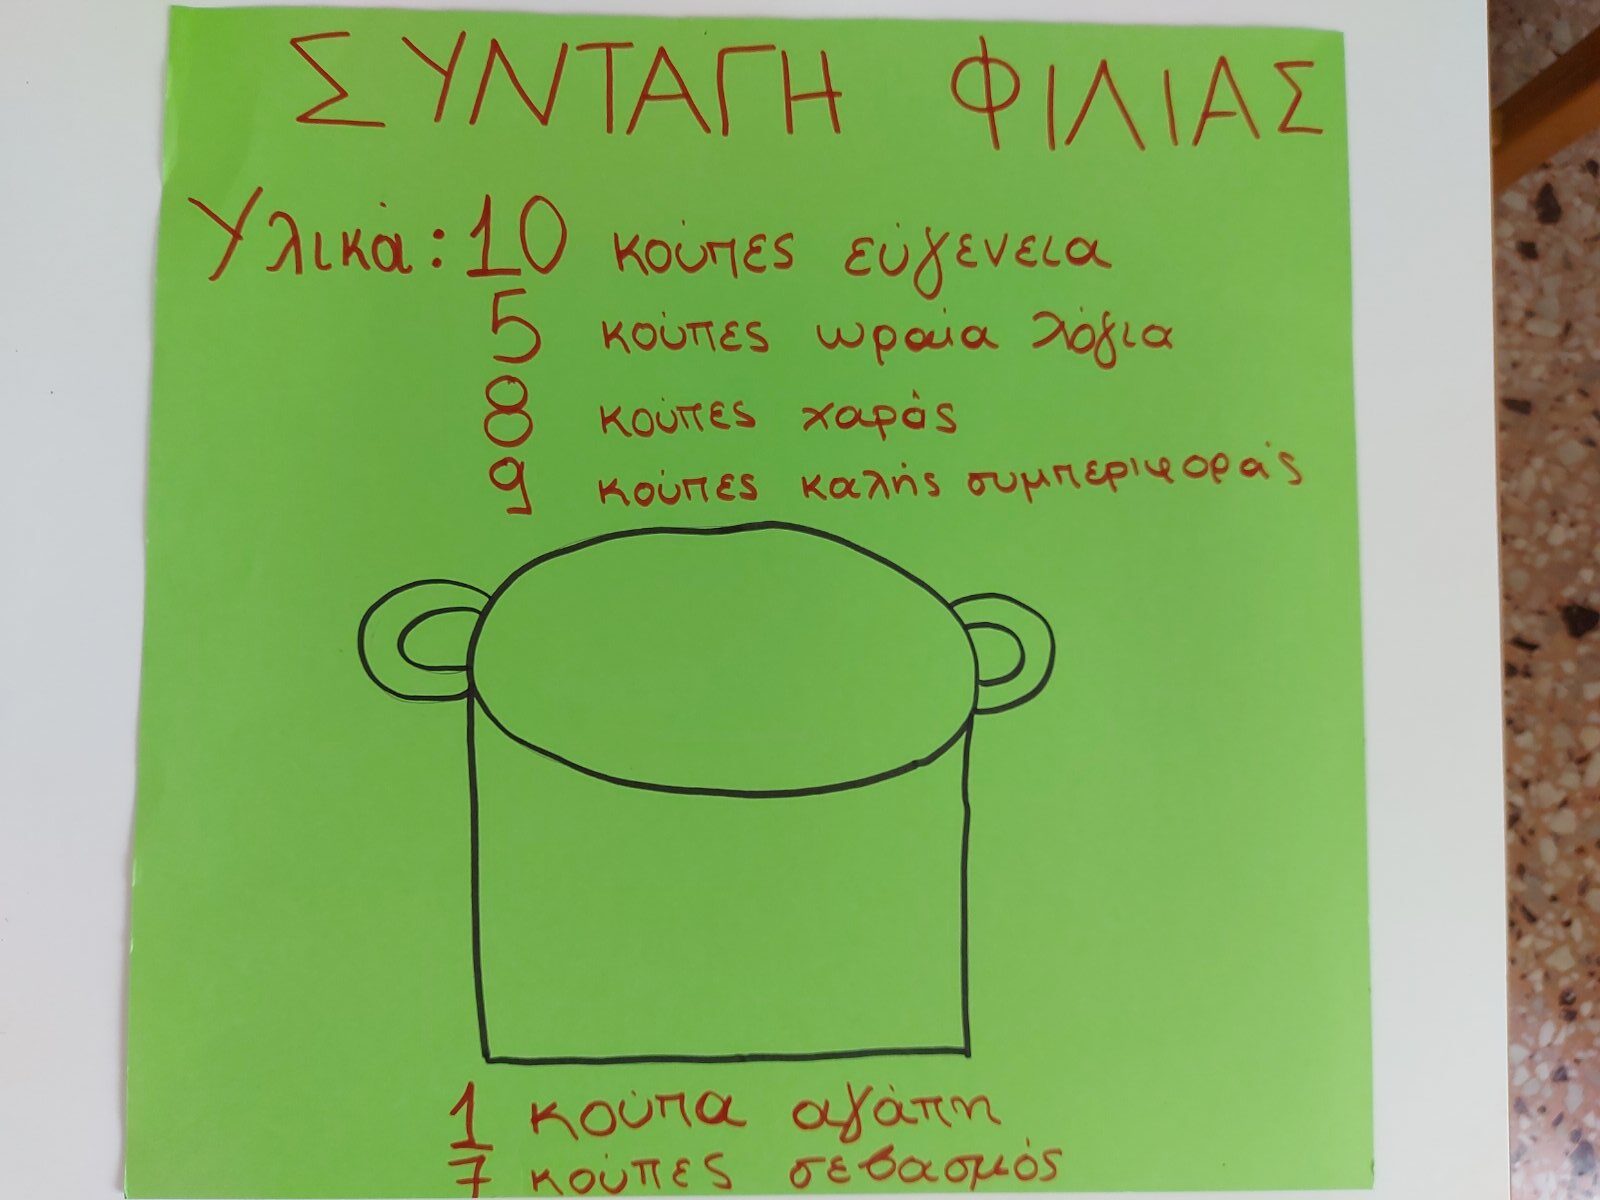 ΣΥΝΤΑΓΗ ΦΙΛΙΑΣ
Υλικά: 10 κούπες εύγενεια
5 κούπες ωραία λόγια
8 κούπες χαράς
9 κούπες καλής συμπεριφοράς
1 κούπα αγάπη
7 κούπες σεβασμός